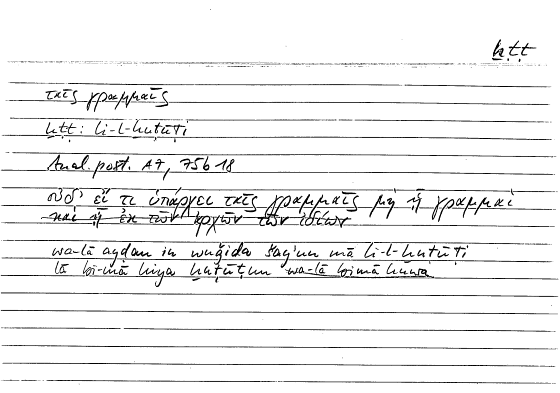 ḫṭṭ
ταῖς γραμμαῖς
ḫṭṭ: li-l-ḫuṭūṭi
Anal. post. A7, 75b18
οὐδ' εἴ τι ὑπάρχει ταῖς γραμμαῖς μὴ ᾗ γραμμαὶ
καὶ ᾗ ἐκ τῶν ἀρχῶν τῶν ἰδίων
wa-lā ayḍan in wuǧida šay'un mā li-l-ḫuṭūṭi
lā bi-mā hiya ḫuṭūṭun wa-lā bimā huwa